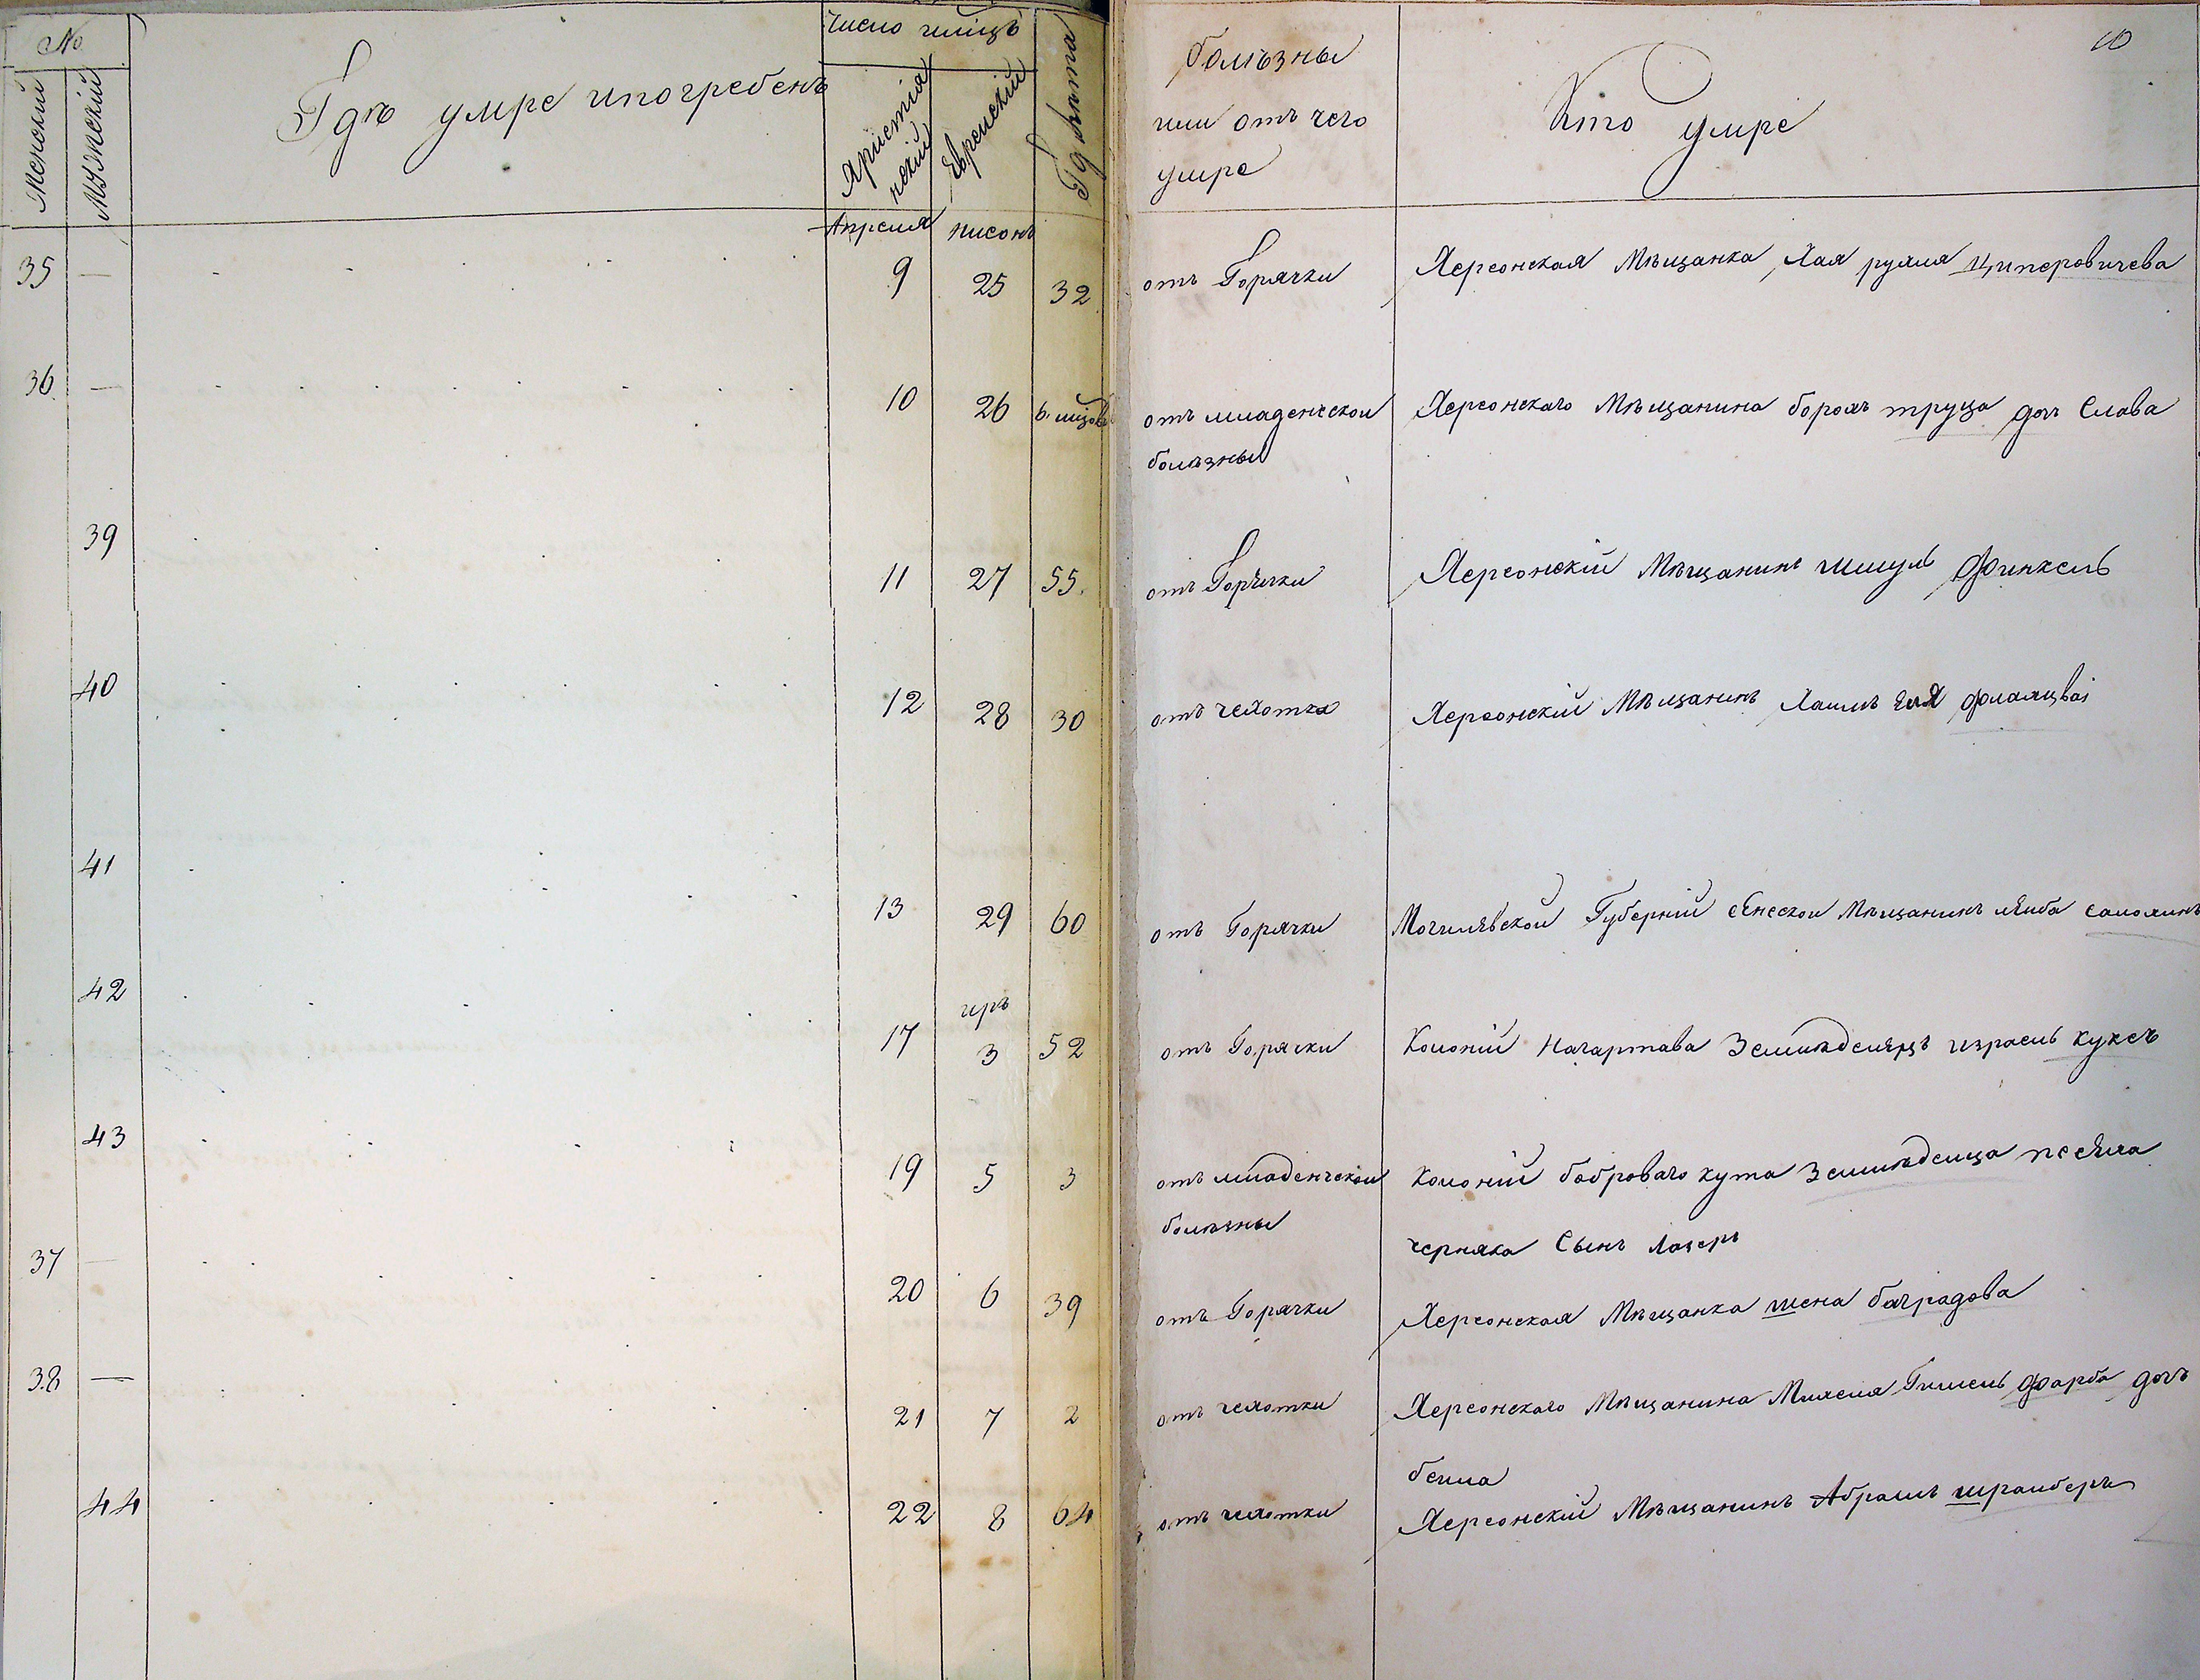 №
Женский
Мужеский
Гдѣ умре ипогребенъ
Число
Християнский
Еврейский
Гдлѣта
Болѣзны
или отъ чего
умре
Кто умре
10
Апреля нисонъ
35 — 9 25 32 отъ Горячки Херсонская Мѣщанка Хая рухля Циперовичева
36 — 10 26 6. отъ младенческой Херсонскаго Мѣщанина борохъ труца доч Слава
болѣзны
39 11 27 55. отъ Горячки Херсонскій Мѣщанинъ шмуль Финкель
40 12 28 30 отъ чехотка Херсонскій Мѣщанинъ Хаимъ
41 13 29 60 отъ Горячки Могилевской Губерній Мѣщанинъ
42 17 иръ 3 52 отъ Горячки Колоній Нагартава Земледелецъ израель куксъ
43 19 5 3 отъ младенческой Колоній боброваго кута
болѣзны черняка Сынъ Лазеръ
37 — 20 6 39 отъ Горячки Херсонская Мѣщанка шена баградова
38 — 21 7 2 отъ чехотки Херсонскаго Мѣщанина Михеля Гишель Фарба дочъ
бейла
44 22 8 64 отъ чехотки Херсонскій Мѣщанинъ Абрамъ шрайберъ